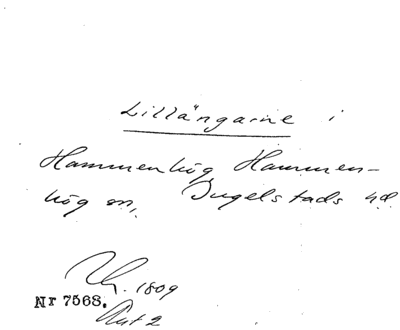 Lillängarne i
Hammenhög Hammen-
hög sn, Ingelstads hd
1809
Nr 7568.
Akt 2